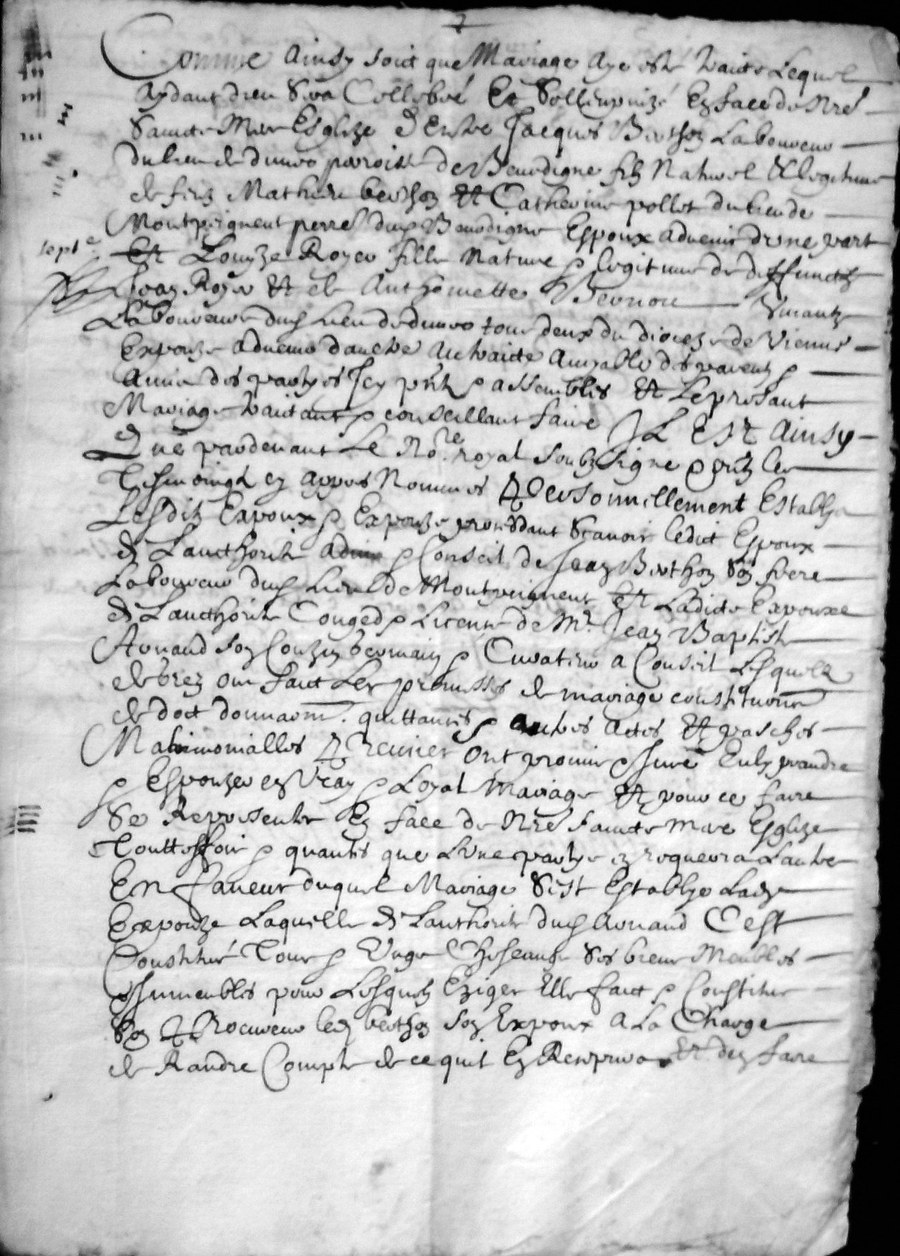 Comme Ainsy soict que Mariage Aye esté traicté Lequel
Aydant dieu sera Cellebré Et Sollempnizé En face de nre
Saincte Mere Esglize d'Entre Jacques Berthon Laboureur
du lieu de parroisse de filz Naturel & legitime
de feuz Mathieu berthon Et Catherine pollet du lieu de
Montpeignent perre dud Espoux advenir d'une part
Et Louyze Royer fille Naturel & legitime de deffunctz
Jean Royer Et de Anthoinette Vernou Vivantz
Laboureur dud lieu de tous deux du diocèze de Vienne
Expouze advenir d'aultre Au traicté Amyable des parents &
Amis des partyes Icy pntz & assemblés Et Le presant
Mariage traitant & conseillant faire IL EST Ainsy
Que pardevant Le No.re royal Soubzsigné & pntz les
Tesmoingz en appres Nommés Personnellement Establys
Lesditz Expoux & Expouze procedant Scavoir ledict Espoux
de L'aucthorité advis & Conseil de Jean Berthon Son frere
Laboureur dud Lieu de Montpeignent Et Ladicte Expouze
de L'aucthorité Conged & Licence de Mr. Jean Baptiste
Avnaud Son Couzin Germain & Curateur a Conseil Lesquelz
de Grez ont faict Les promesses de mariage constitution
de dot donnaon. quittances & aultres Actes Et pasches
Matrimonialles Premier ont promis & Juré Entre prandre
& Espouzer en Vray & Loyal Mariage Et pour ce faire
Se Representer En face de Nre saincte mere Esglize
Touttesfois & quantes que L'une partye en requerra L'autre
En faveur duquel Mariage S'est Establye Lad
Expouze Laquelle de L'authorité dud Avnaud C'est
Constitué Tous & Ungs Cheseaulx Ses biens Meubles
& Immeubles pour Lesquelz Exiger Elle faict & Constitue
Son Procureur led berthon Son Expoux A La Charge
de Randre Compte de ce quil En Et den faire